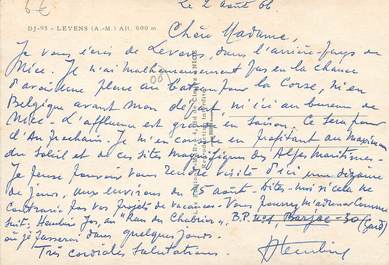 6€
DJ-95 - LEVENS (A.-M.) Alt. 600 m.
Le 2 août 66
Chère Madame,
Je vous écris de Levens, dans l'arrière-pays de
Nice. Je n'ai malheureusement pas eu la chance
d'avoir une place au bateau pour la Corse, ni en
Belgique avant mon départ, ni ici au bureau de
Nice. L'affluence est grande en saison. Ce sera pour
l'An prochain. Je m'en console en profitant au maximum
du soleil et de ces sites magnifiques des Alpes Maritimes.
Je pense pouvoir vous rendre visite d'ici une dizaine
de jours, aux environs du 15 août. Dites-moi si cela ne
contrarie pas vos projets de vacances. Vous pouvez m'adresser comme
suit: "
B.P. n°1, Barjac-30 (Gard)
où je passerai dans quelques jours.
Très cordiales salutations.